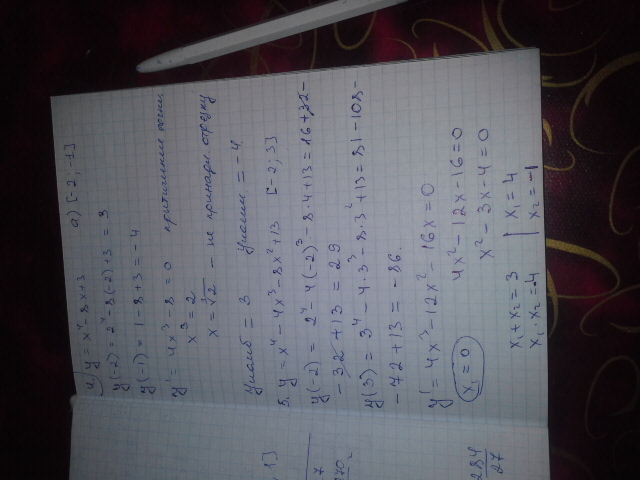 4) y = x⁴ - 8x + 3   а) [-2; -1]
y(-2) = 2⁴ - 8(-2) + 3 = 3
y(-1) = 1 - 8 + 3 = -4
y' = 4x³ - 8 = 0   точки
x³ = 2
x = ∛2 - не принадл. отрезку
Yнаиб = 3   Yнаим = -4.
5. y = x⁴ - 4x³ - 8x² + 13   [-2; 3]
y(-2) = 2⁴ - 4(-2)³ - 8·4 + 13 = 16 + 32 -
- 32 + 13 = 29
y(3) = 3⁴ - 4·3³ - 8·3² + 13 = 81 - 108 -
- 72 + 13 = -86.
y' = 4x³ - 12x² - 16x = 0
x₁ = 0   4x² - 12x - 16 = 0
x² - 3x - 4 = 0
x₁ + x₂ = 3   x₁ = 4
x₁ · x₂ = -4   x₂ = -1
, 1]
7
284
27